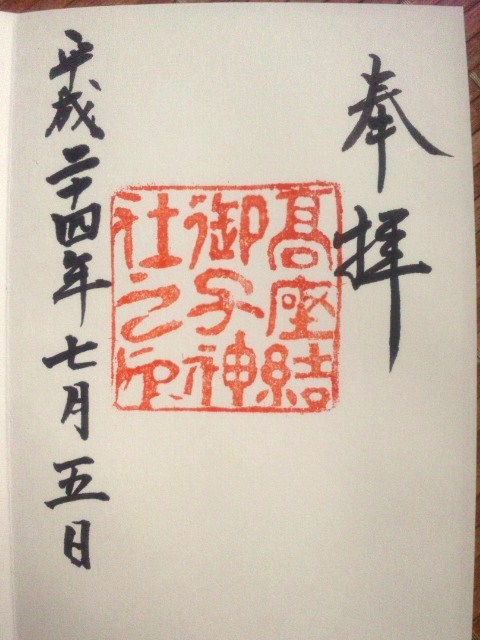 奉拝
髙座結
御子神
社之印
平成二十四年七月五日